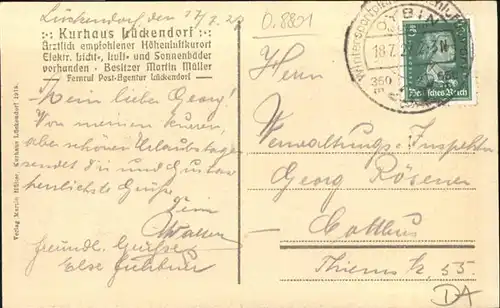 Lückendorf den 17/7. 29
D.8801
Kurhaus Lückendorf
Ärztlich empfohlener Höhenluftkurort
Elektr. Licht-, Luft- und Sonnenbäder
vorhanden - Besitzer Martin Müller
Fernruf Post-Agentur Lückendorf
OYBIN
18.7.
Deutsches Reich
Mein lieber Georg!
Von meinen
aber schönen Urlaubstagen
sendet dir und Gustav
herzlichste Grüße
Dein
Walter
freundl. Grüße
Else
Herrn
Verwaltungs-Inspektor
Georg Rösener
Cottbus
Thiemstr. 55
Verlag Martin Müller, Kurhaus Lückendorf
DA